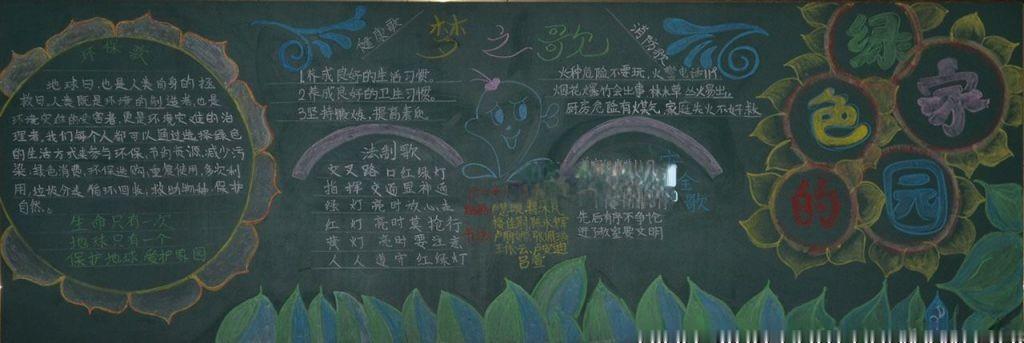 环保歌
地球日,也是人类自身的拯
救日,人类既是环境的制造者,也是
环境灾难的受害者,更是环境灾难的治
理者,我们每个人都可以通过选择绿色
的生活方式来参与环保,节约资源,减少污
染,绿色消费,环保选购,重复使用,多次利
用,垃圾分类,循环回收,救助物种,保护
自然。
生命只有一次
地球只有一个
保护地球 爱护家园
健康歌
梦之歌
消防歌
1.养成良好的生活习惯。
2.养成良好的卫生习惯。
3.坚持锻炼,提高素质
火种危险不要玩,火警电话119
烟花爆竹会出事 林木草丛火易出,
厨房危险有煤气,家庭失火不好救
法制歌
交叉路口红绿灯
指挥交通显神通
绿灯亮时放心走
红灯亮时莫抢行
黄灯亮时要注意
人人遵守红绿灯
全
歌
先后有序不争抢
进了教室要文明
绿
色
家
的
园